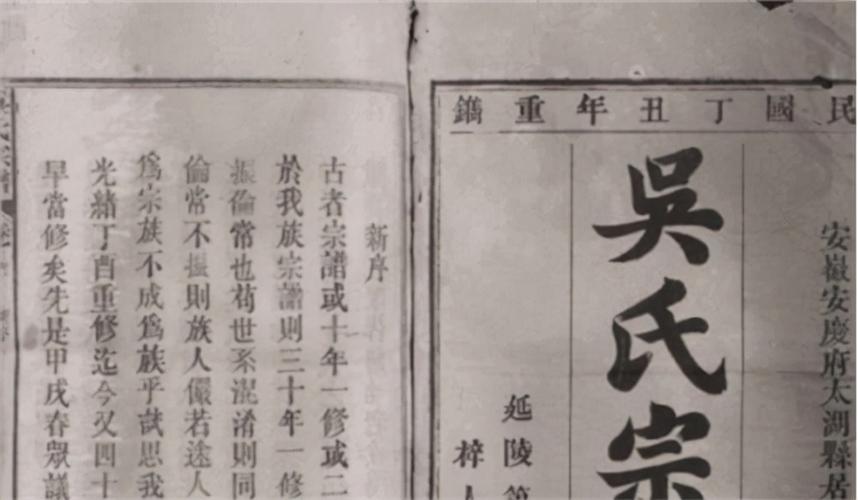 民國丁丑年重鐫
安徽安慶府太湖縣居
吳氏宗
延陵第
梓人
新序
古者宗譜或十年一修或二
於我族宗譜則三十年一修
振倫常也苟世系混淆則同
倫常不振則族人儼若途人
爲宗族不成爲族乎試思我
光緒丁酉重修迄今又四十
早當修矣先是甲戌春眾議
氏宗譜